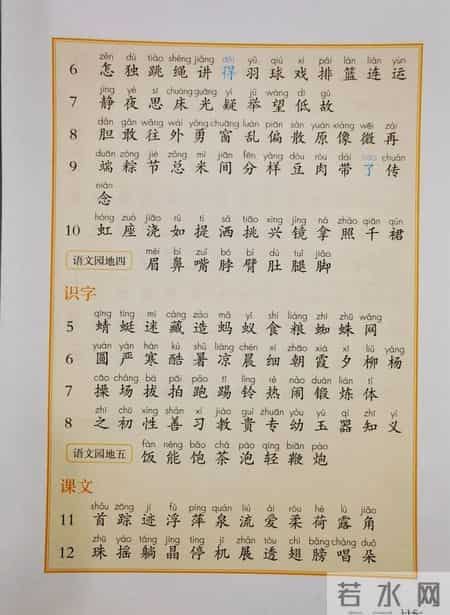 zěn dú tiào shéng jiǎng děi yǔ qiú xì pái lán lián yùn
6 怎 独 跳 绳 讲 得 羽 球 戏 排 篮 连 运
jìng yè sī chuáng guāng yí jǔ wàng dī gù
7 静 夜 思 床 光 疑 举 望 低 故
dǎn gǎn wǎng wài yǒng chuāng luàn piān sàn yuán xiàng wēi zài
8 胆 敢 往 外 勇 窗 乱 偏 散 原 像 微 再
duān zòng jié zǒng mǐ jiān fēn yàng dòu ròu dài liǎo chuán
9 端 粽 节 总 米 间 分 样 豆 肉 带 了 传
niàn
念
hóng zuò jiāo rú tí sǎ tiǎo xìng jìng ná zhào qiān qún
10 虹 座 浇 如 提 洒 挑 兴 镜 拿 照 千 裙
méi bí zuǐ bó bì dù tuǐ jiǎo
语文园地四 眉 鼻 嘴 脖 臂 肚 腿 脚
识字
qīng tíng mí cáng zào mǎ yǐ shí liáng zhī zhū wǎng
5 蜻 蜓 迷 藏 造 蚂 蚁 食 粮 蜘 蛛 网
yuán yán hán kù shǔ liáng chén xì zhāo xiá xī liǔ yáng
6 圆 严 寒 酷 暑 凉 晨 细 朝 霞 夕 柳 杨
cāo chǎng bá pāi pǎo tī líng rè nào duàn liàn tǐ
7 操 场 拔 拍 跑 踢 铃 热 闹 锻 炼 体
zhī chū xìng shàn xí jiào guì zhuān yòu yù qì zhī yì
8 之 初 性 善 习 教 贵 专 幼 玉 器 知 义
fàn néng bǎo chá pào qīng biān pào
语文园地五 饭 能 饱 茶 泡 轻 鞭 炮
课文
shǒu zōng jì fú píng quán liú ài róu hé lù jiǎo
11 首 踪 迹 浮 萍 泉 流 爱 柔 荷 露 角
zhū yáo tǎng jīng tíng jī zhǎn tòu chì bǎng chàng duǒ
12 珠 摇 躺 晶 停 机 展 透 翅 膀 唱 朵
若水网